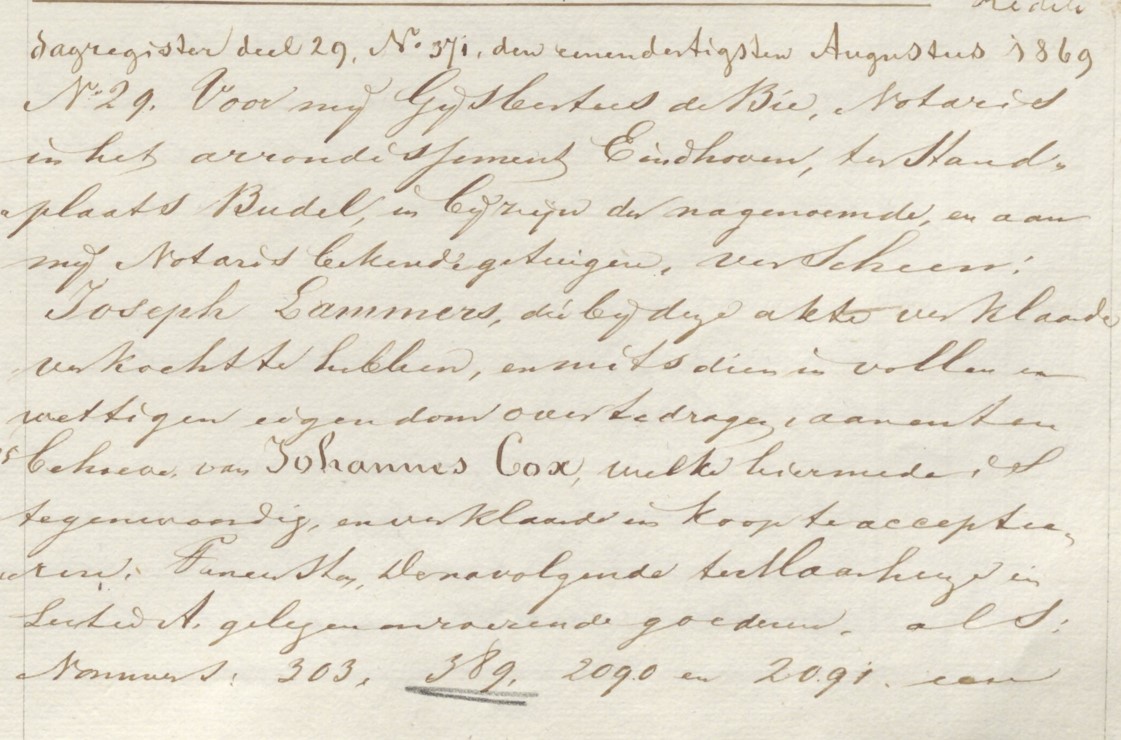 dagregister deel 29, No. 371, den eenendertigsten Augustus 1869
No. 29. Voor mij Gijsbertus de Bie, Notaris
in het arrondissement Eindhoven, ter Stand-
plaats Budel, in bijzijn der nagenoemde, en aan
mij Notaris bekende getuigen, verscheen:
Joseph Lammers, die bij deze akte verklaarde
verkocht te hebben, en mits dien in vollen en
wettigen eigendom over te dragen, aan en ten
behoeve van Johannes Cox, welke hiermede is
tegenwoordig, en verklaarde in koop te acceptee-
ren. De navolgende te Maarheeze in
Sectie A. gelegen onroerende goederen. als:
Nommers: 303, 389, 2090 en 2091. een